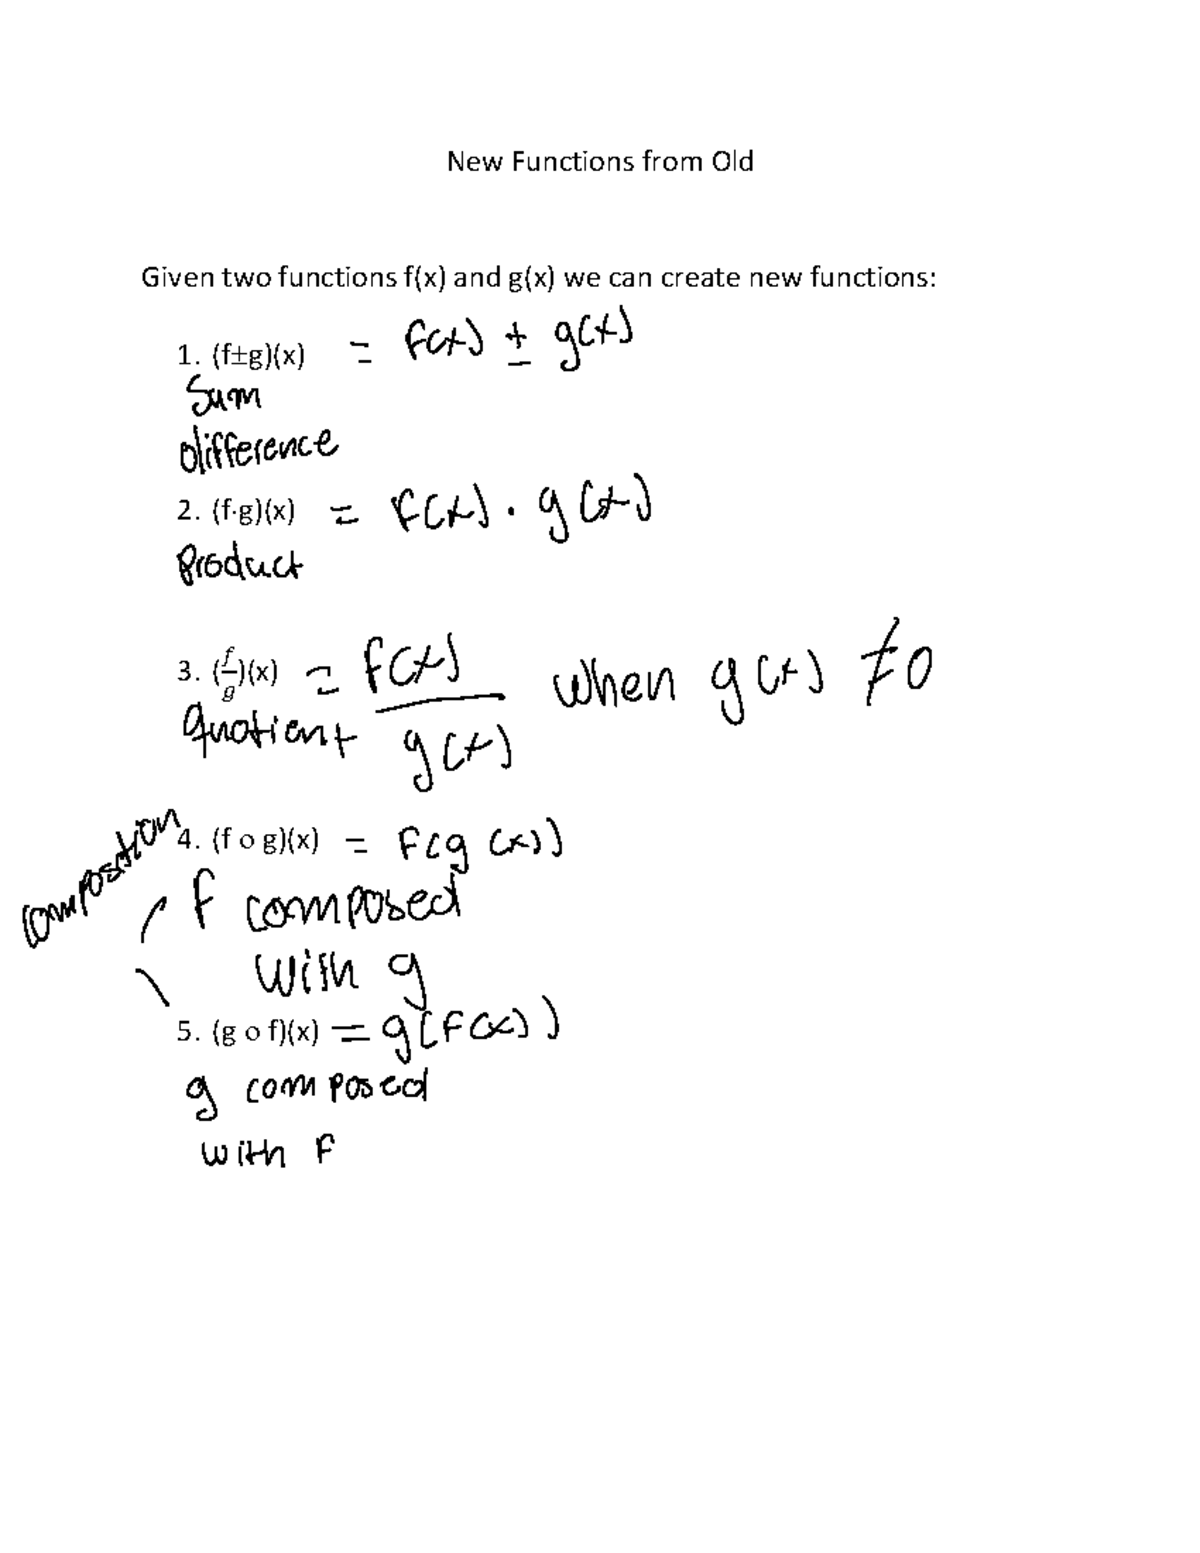 New Functions from Old
Given two functions f(x) and g(x) we can create new functions:
1. (f±g)(x) = f(x) ± g(x)
Sum
difference
2. (f·g)(x) = f(x) · g(x)
Product
3. (f/g)(x) = f(x)/g(x) when g(x) ≠ 0
quotient
composition
4. (f o g)(x) = f(g(x))
f composed
with g
5. (g o f)(x) = g(f(x))
g composed
with f